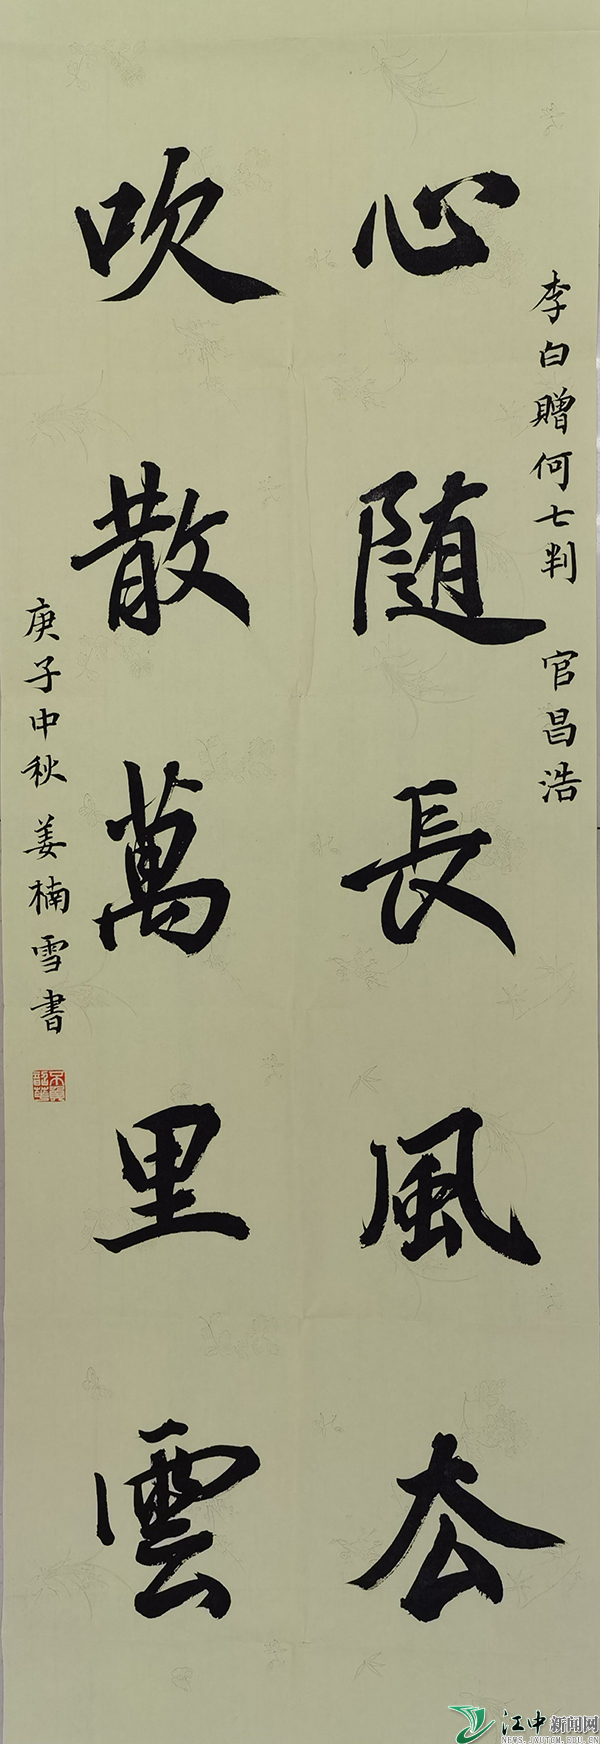 李白贈何七判 官昌浩
心随長風厺
吹散萬里雲
庚子中秋 姜楠雪書
不負韶華
江中新闻网
NEWS.JXUTCM.EDU.CN